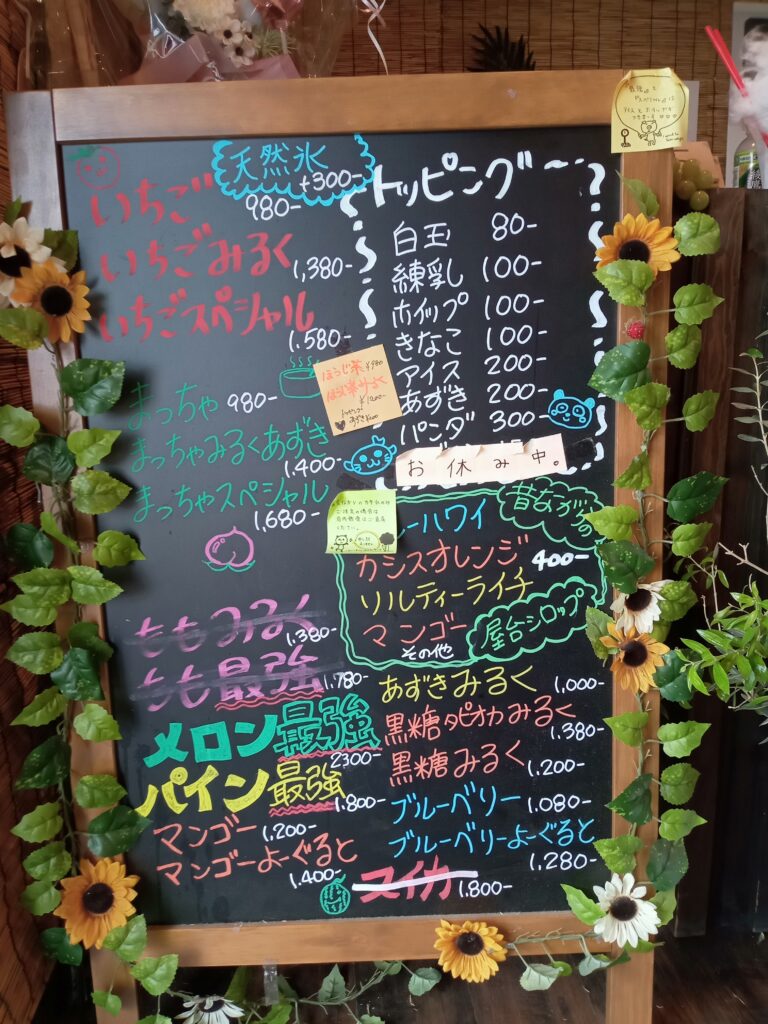 天然氷
+300-
いちご 980-
いちごみるく 1,380-
いちごスペシャル
1.580-
まっちゃ 980-
まっちゃみるくあずき
1.400-
まっちゃスペシャル
1,680-
ももみるく
1.380-
もも最強 1.780-
メロン最強
2300-
パイン最強
1.800-
マンゴー 1,200-
マンゴーよーぐると
1.400-
トッピング
白玉 80-
練乳 100-
ホイップ 100-
きなこ 100-
アイス 200-
あずき 200-
パンダ 300-
お休み中。
ほうじ茶 ¥980
¥1200-
昔ながらの
ーハワイ
カシスオレンジ
400-
ソルティーライチ
マンゴー
その他
屋台シロップ
あずきみるく
1,000-
黒糖タピオカみるく
1.380-
黒糖みるく 1.200-
ブルーベリー 1.080-
ブルーベリーよーぐると
1,280-
スイカ 1.800-